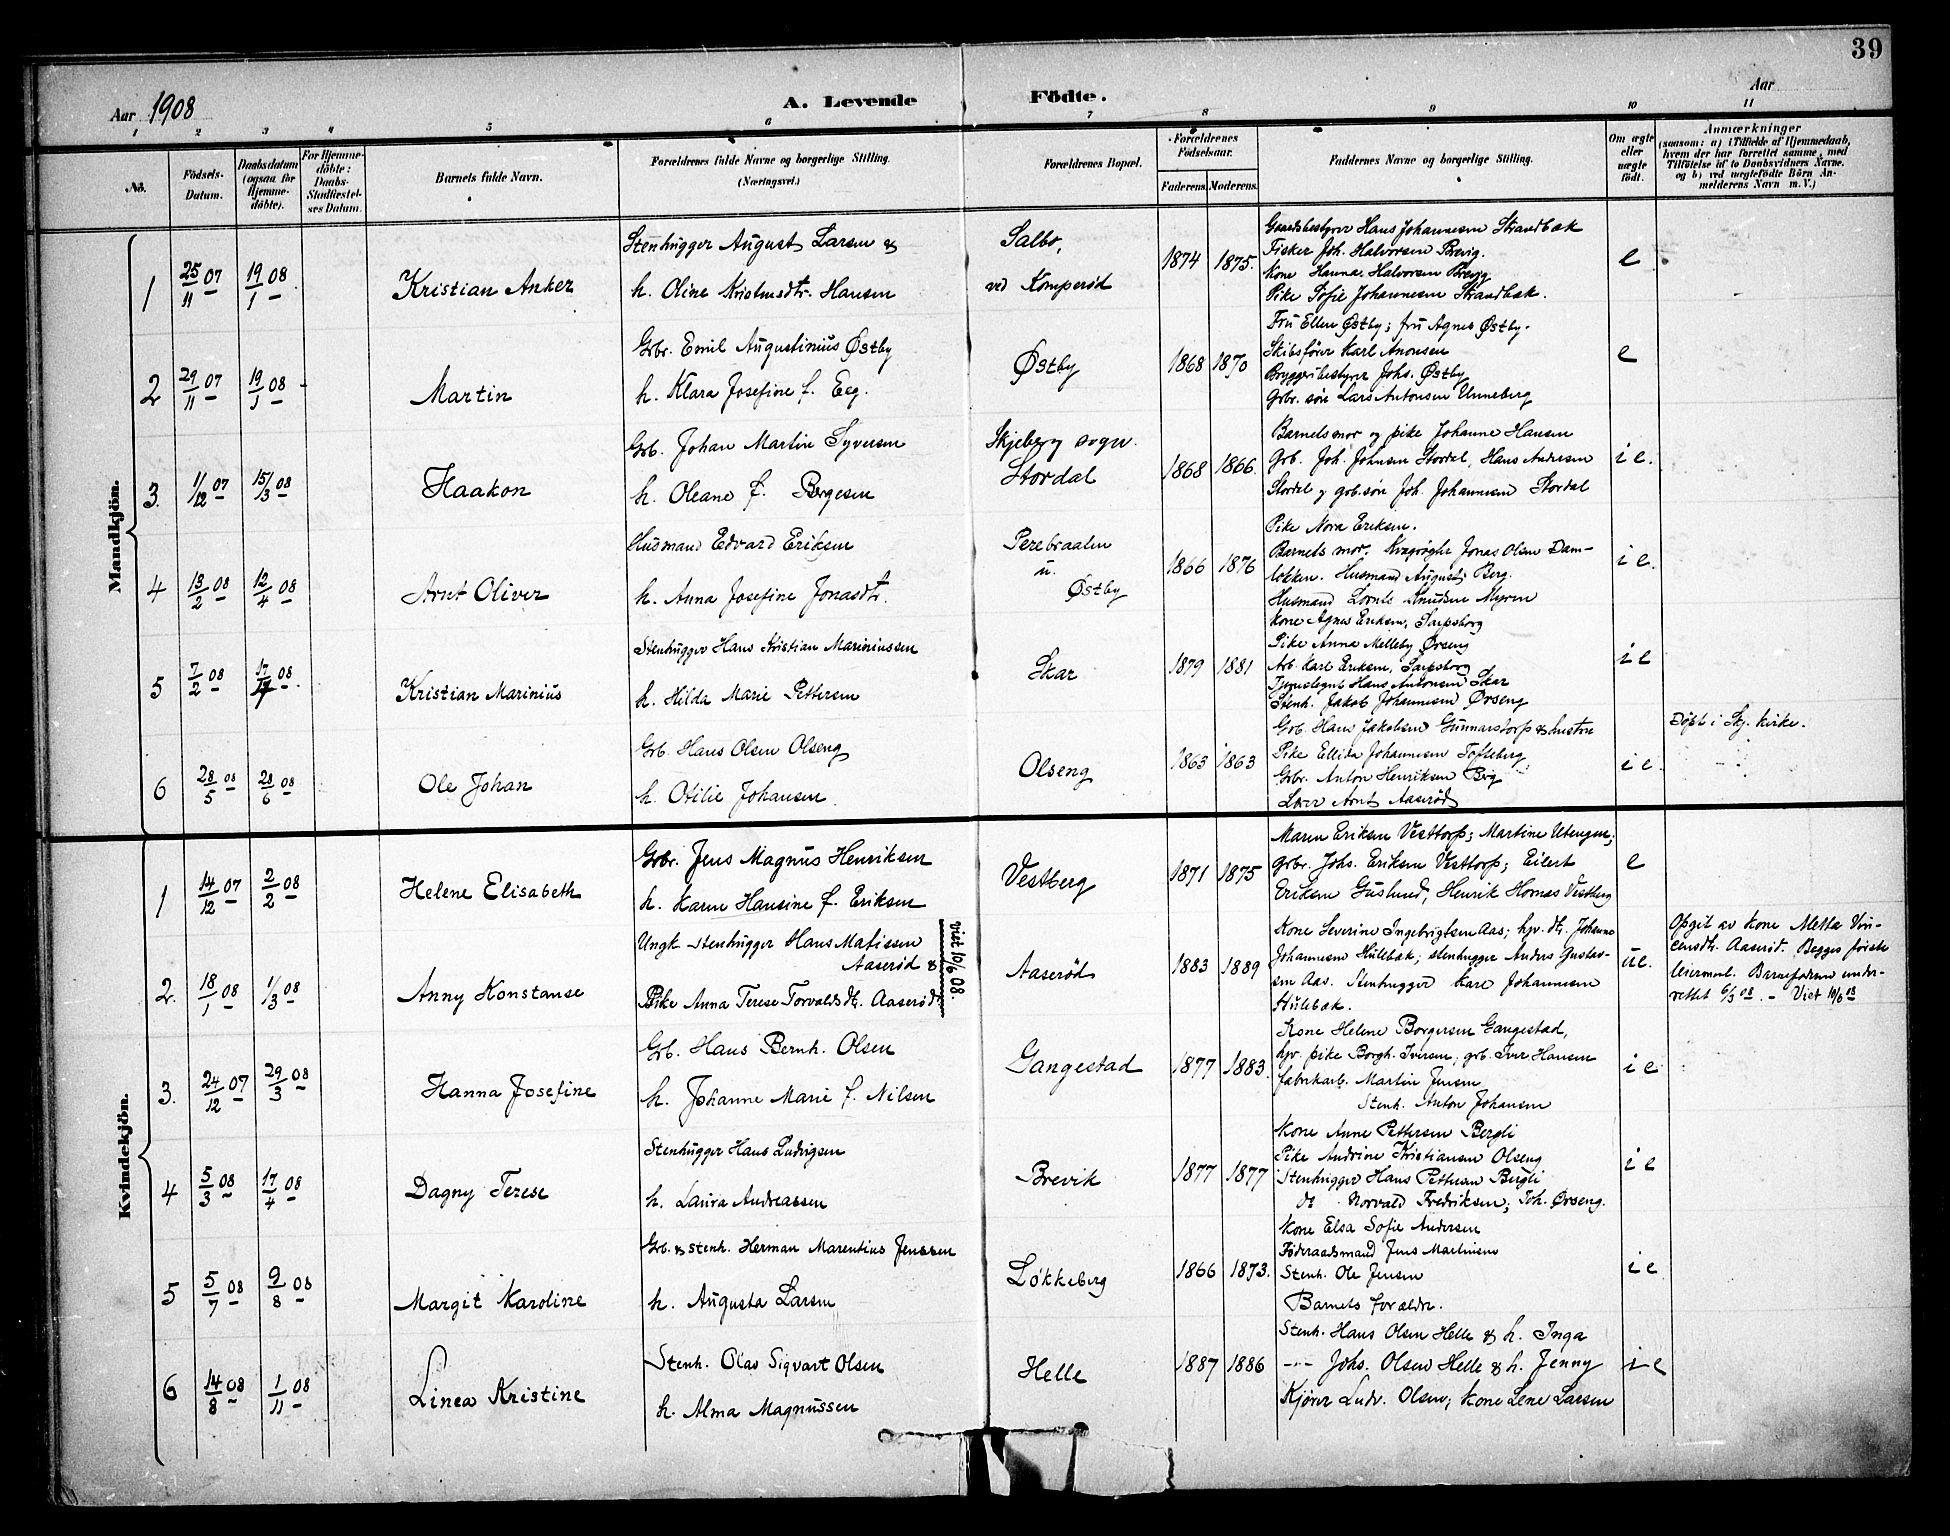 39
Aar 1908
A. Levende Födte.
Aar
1 2 3 4 5 6 7 8 9 10 11
No.
Födsels-Datum.
Daabsdatum (ogsaa for Hjemme-döbte).
For Hjemme-döbte: Daabs-Stadfæstel-ses Datum.
Barnets fulde Navn.
Forældrenes fulde Navne og borgerlige Stilling. (Næringsvei.)
Forældrenes Bopæl.
Forældrenes Födselsaar.
Faderens. Moderens.
Faddernes Navne og borgerlige Stilling.
Om ægte eller uægte födt.
Anmærkninger
(saasom: a) i Tilfælde af Hjemmedaab, hvem der har forrettet samme, med Tilföielse af to Daabsvidners Navne, og b) ved uægtefödte Börn An-melderens Navn m. V.)
Mandkjön.
1 25/11 07 19/1 08 Kristian Anker
Stenhugger August Larsen &
h. Oline Kristensdtr. Hansen
Salbo,
ved Komperød
1874 1875.
Gaardsbestyrer Hans Johannesen Strandbæk
Fisker Joh. Halvorsen Brevig.
Kone Hanna Halvorsen Brevig
Pike Sofie Johannesen Strandbæk.
e
2 29/11 07 19/1 08 Martin
Gbr. Emil Augustinius Østby
h. Klara Josefine f. Eeg.
Østby
1868 1870
Fru Ellen Østby; fru Agnes Østby.
Skibsfører Karl Anonsen
Bryggeribestyrer Johs. Østby
Gbr. søn Lars Antonsen Unneberg
e
3. 1/12 07 15/3 08 Haakon
Grb. Johan Martin Syversen
h. Oleane f. Borgesen
Skjeberg sogn.
Stordal
1868 1866.
Barnets mor og pike Johanne Hansen
Grb. Joh. Johnsen Stordal, Hans Andersen
Stordal y grb. søn Joh. Johannesen Stordal
i e.
4 13/2 08 12/4 08 Arnt Oliver
Husmand Edvard Eriksen
h. Anna Josefine Jonasdtr.
Perebraaten
u.
Østby
1866 1876
Pike Nora Eriksen.
Barnets mor. Kvægrøgter Jonas Olsen Dam-
løkken. Husmand August Berg.
Husmand Lornts Knudsen Myren
Kone Agnes Eriksen, Sarpsborg
i e.
5 7/2 08 17/4 08 Kristian Marinius
Stenhugger Hans Kristian Mariniussen
h. Hilda Marie Pettersen
Skar
1879 1881
Pike Anna Melleby Ørseng
Arb. Karl Eriksen, Sarpsborg
Tjenestegut Hans Antonsen Skar
Stenh. Jakob Johannesen Ørseng
i e
6 28/5 08 28/6 08 Ole Johan
Grb. Hans Olsen Olseng
h. Otilie Johansen
Olseng
1863 1863
Grb. Hans Jakobsen Gunnarstorp & hustru
Pike Ellida Johannesen Tofteberg
Grbr. Anton Henriksen Berg
Lærer Arnt Aaserød
i e.
Døbt i Skj. kirke.
Kvindekjön.
1 14/12 07 2/2 08 Helene Elisabeth
Grbr. Jens Magnus Henriksen
h. Karen Hansine f. Eriksen
Vestberg
1871 1875
Maren Eriksen Vesttorp; Martine Utengen;
grbr. Johs. Eriksen Vesttorp; Eilert
Eriksen Guslund; Henrik Hornæs Vestberg
e
2. 18/1 08 1/3 08 Anny Konstanse
Ungk. Stenhugger Hans Matissen
Aaserød &
Pike Anna Terese Torvaldsdtr. Aaserød
viet 10/6 08.
Aaserød
1883 1889
Kone Severine Ingebrigtsen Aas; hjv. dtr. Johanne
Johannesen Hulebæk; stenhugger Anders Gustav-
sen Aas. Stenhugger Karl Johannesen
Hulebæk.
ue.
Opgit av Kone Mette Vin-
censdtr. Aaserød. Begges første
leiermaal. Barnefaderen under-
rettet 6/3 08. – Viet 10/6 08
3. 24/12 07 29/3 08 Hanna Josefine
Grb. Hans Bernh. Olsen
h. Johanne Marie f. Nilsen
Gangestad
1877 1883.
Kone Helene Borgersen Gangestad,
hjv. pike Borgh. Iversen, grb. Iver Hansen
fabrikarb. Martin Jensen
Stenh. Anton Johansen
i e
4 5/3 08 17/4 08 Dagny Terese
Stenhugger Hans Ludvigsen
h. Laura Andreassen
Brevik
1877 1877
Kone Anne Pettersen Bergli
Pike Andrine Kristiansen Olseng
Stenhugger Hans Pettersen Bergli
do Norvald Fredriksen; Joh. Ørseng.
i e
5 5/7 08 9/8 08 Margit Karoline
Grb. & stenh. Herman Marentius Jenssen
h. Augusta Larsen
Løkkeberg
1866 1873.
Kone Elsa Sofie Andersen
Føderaadsmand Jens Martinsen
Stenh. Ole Jensen
Barnets forældre.
i e
6 14/8 08 1/11 08 Linea Kristine
Stenh. Olav Sigvart Olsen
h. Alma Magnussen
Helle
1887 1886
Stenh. Hans Olsen Helle & h. Inga
--- Johs. Olsen Helle & h. Jenny
Kjører Ludv. Olsen; Kone Lene Larsen
i e